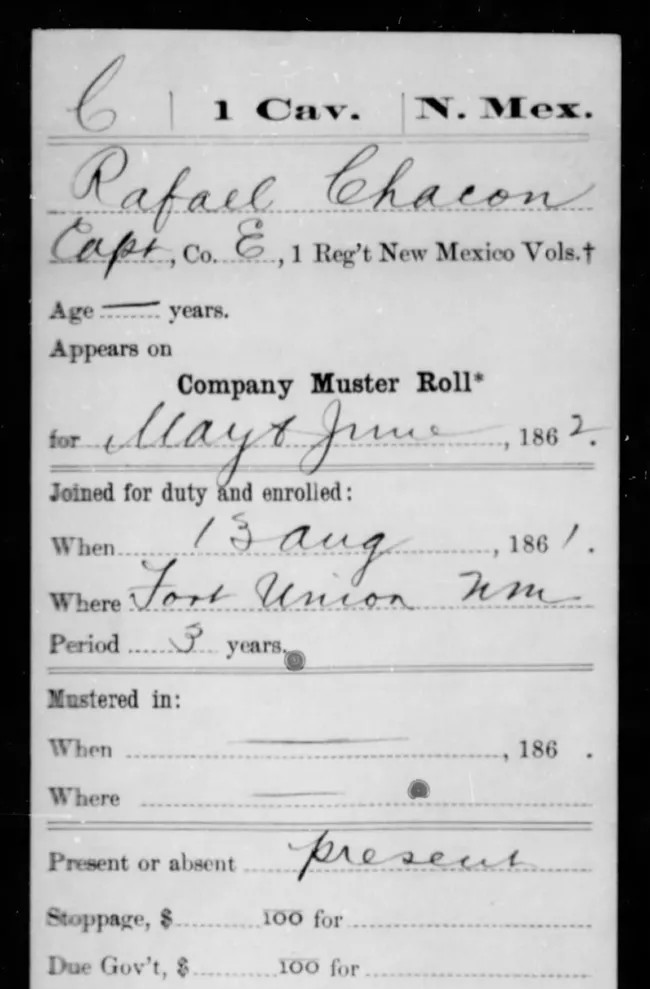 C | 1 Cav. | N. Mex.
Rafael Chacon
Capt, Co. E, 1 Reg't New Mexico Vols.†
Age — years.
Appears on
Company Muster Roll*
for May & June, 1862.
Joined for duty and enrolled:
When 13 Aug, 1861.
Where Fort Union NM
Period 3 years.
Mustered in:
When —, 186 .
Where —
Present or absent present
Stoppage, $ 100 for
Due Gov't, $ 100 for